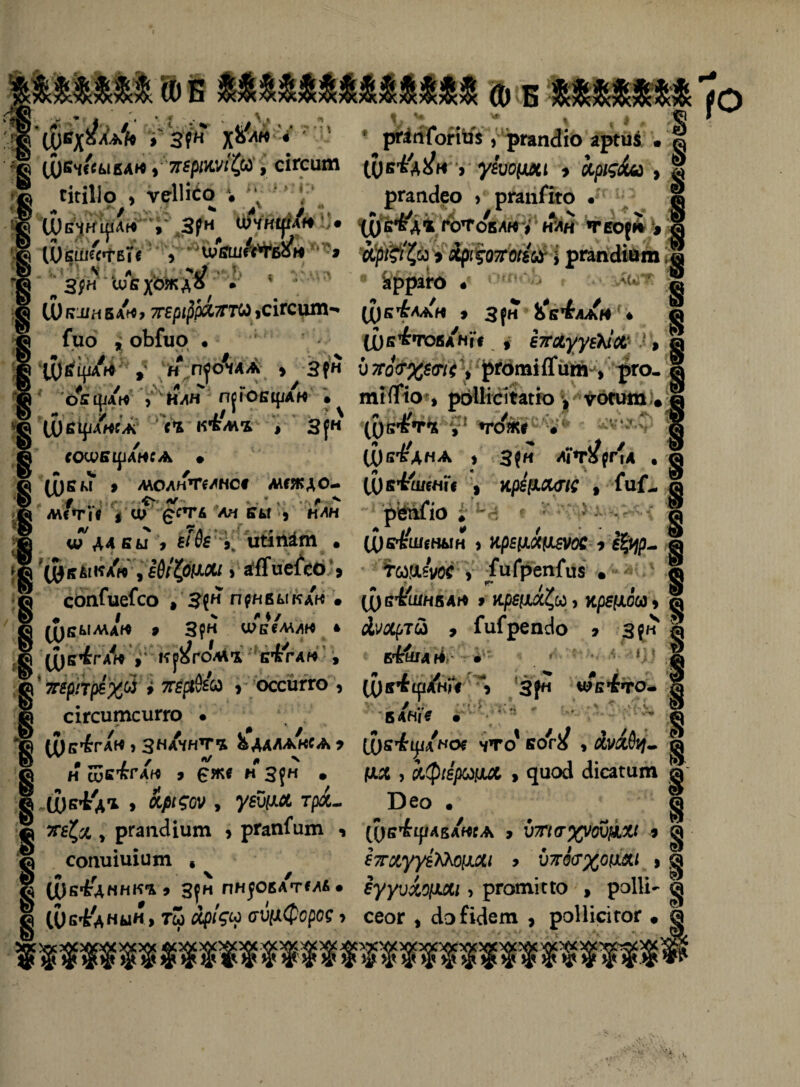 Ѡ Б Ѡ Б
Ѡбхꙋлѧ́ю, зри̑ хꙋ́лю.
Ѡбче́сываю, περικνίζω, circum
titillo, vellico.
Ѡбчища́ю, зри̑ ѡ҆чища́ю.
Ѡбше́ствїе, ѡбше́ствꙋю,
зри̑ ѡбхожда́ю.
Ѡбшива́ю, περιῤῥάπτω, circum-
fuo, obfuo.
Ѡбща́ю, и зри̑
ѻбща́ю, или̑ прїобща́ю.
Ѡбща́юсѧ съ кѣ́мъ, зри̑
соѡбща́юсѧ.
Ѡбы̑, моли́телное междо-
ме́тїе, ѡ҆̑ є҆́сть ли бы, или̑
ѡ҆̑ да бы, εἴθε, utinam.
Ѡбыка́ю, ἐθίζομαι, assuefco,
confuefco, зри̑ привыка́ю.
Ѡбыма́ю, зри̑ ѡбе́млю.
Ѡбѣга́ю, крꙋго́мъ бѣ́гаю,
περιτρέχω, περιθέω, occurro,
circumcurro.
Ѡбѣга́ю, зна́читъ ꙋ҆далѧ́юсѧ,
и ѿбѣга́ю, є҆же и зри̑.
Ѡбѣ́дъ, ἄριςον, γεῦμα τρά-
πεζα, prandium, pranfum,
conuiuium.
Ѡбѣ́дникъ, зри̑ пирова́тель.
Ѡбѣ́дный, τῷ ἀρίςῳ σύμφορος,
prānforitis, prandio aptus.
Ѡбѣ́дꙋю, γεύομαι, ἀριςάω,
prandeo, pranfito.
Ѡбѣ́дъ гото́влю, или̑ творю̀,
ἀριςίζω, ἀριςοποιέω, prandium
apparo.
Ѡбѣлѧ́ю, зри̑ ꙋ҆бѣлѧ́ю.
Ѡбѣтова́нїе, ἐπαγγελία,
ὑπόσχεσις, promiffum, pro-
miffio, pollicitatio, votum.
Ѡбѣ́тъ, то́же.
Ѡбѣ́днѧ, зри̑ лїтꙋргі́а.
Ѡбѣ́шенїе, κρέμασις, fuf-
penfio.
Ѡбѣ́шеный, κρεμάμενος, ἐξηρ-
τώμενος, fufpenfus.
Ѡбѣ́шиваю, κρεμάζω, κρεμόω,
ἀναρτῶ, fufpendo, зри̑
вѣ́шаю.
Ѡбѣща́нїе, зри̑ ѡбѣто-
ва́нїе.
Ѡбѣща́ное что̀ бо́гꙋ, ἀνάθη-
μα, ἀφιέρωμα, quod dicatum
Deo.
Ѡбѣщава́юсѧ, ὑπισχνοῦμαι,
ἐπαγγέλλομαι, ὑπόσχομαι,
ἐγγυάομαι, promitto, polli-
ceor, do fidem, pollicitor.